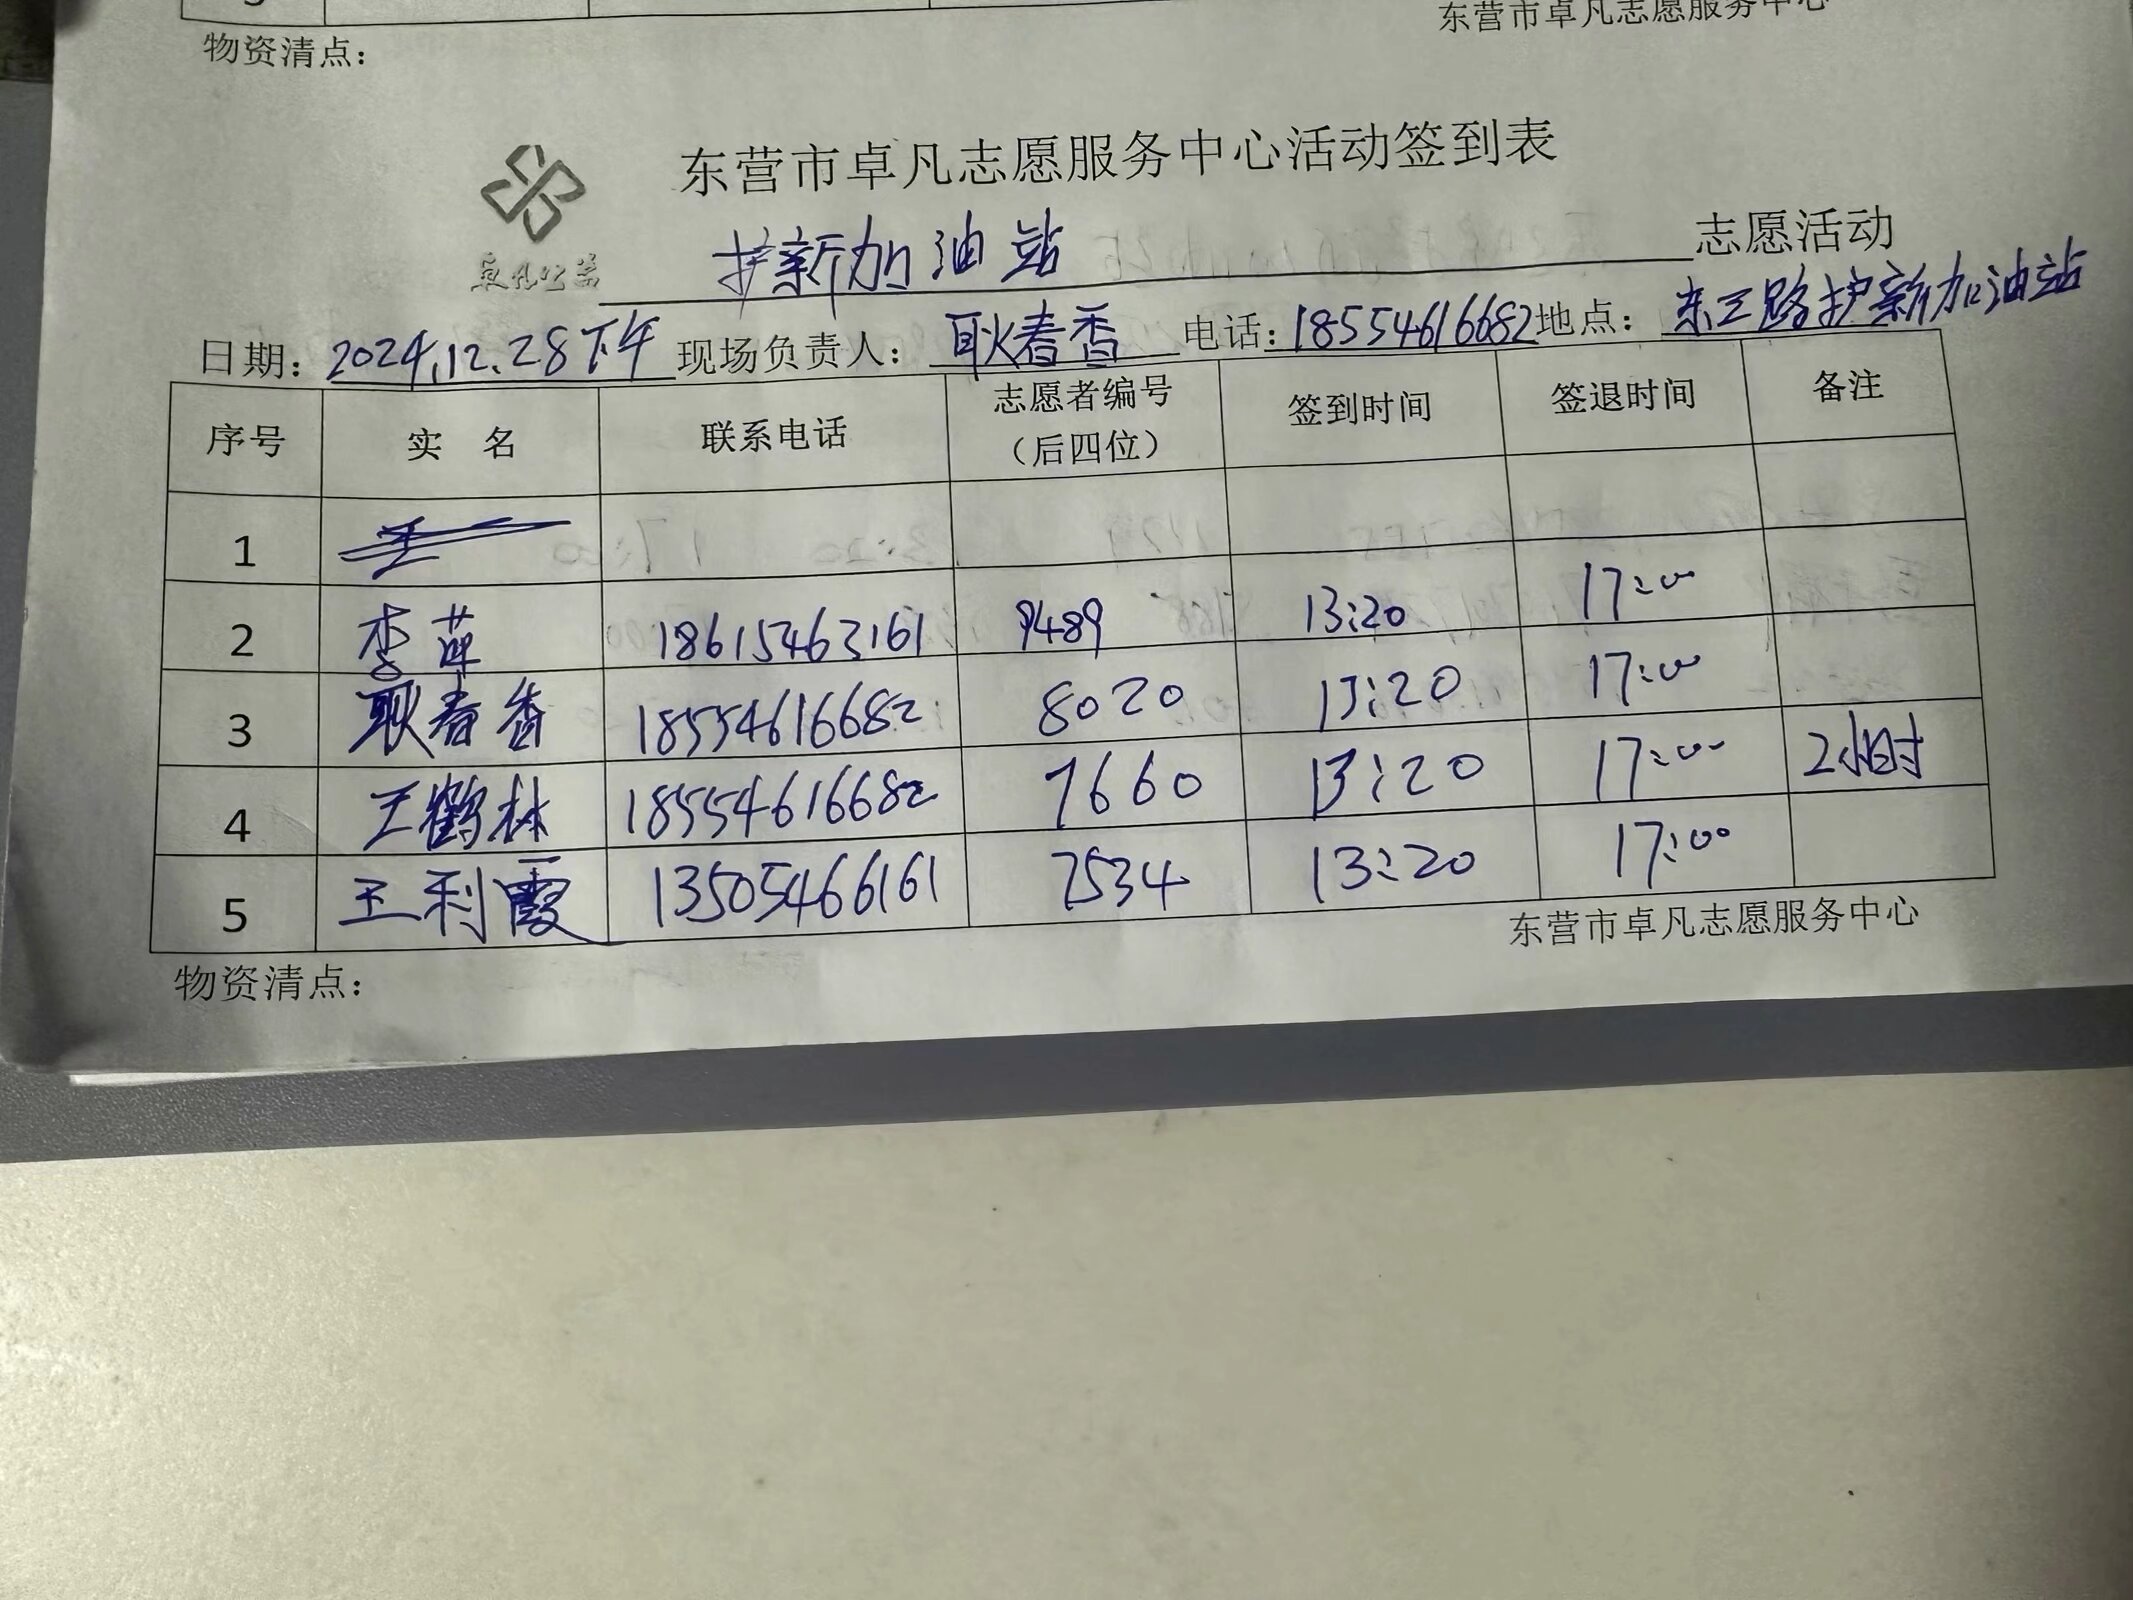 东营市卓凡志愿服务中心
物资清点：
东营市卓凡志愿服务中心活动签到表
卓凡公益
护新加油站 志愿活动
日期：2024.12.28下午 现场负责人：耿春香 电话：18554616682 地点：东三路护新加油站
序号 实 名 联系电话 志愿者编号（后四位） 签到时间 签退时间 备注
1
2 李萍 18615463161 9489 13:20 17:00
3 耿春香 18554616682 8020 13:20 17:00
4 王鹤林 18554616682 7660 13:20 17:00 2小时
5 王利霞 13505466161 7534 13:20 17:00
东营市卓凡志愿服务中心
物资清点：